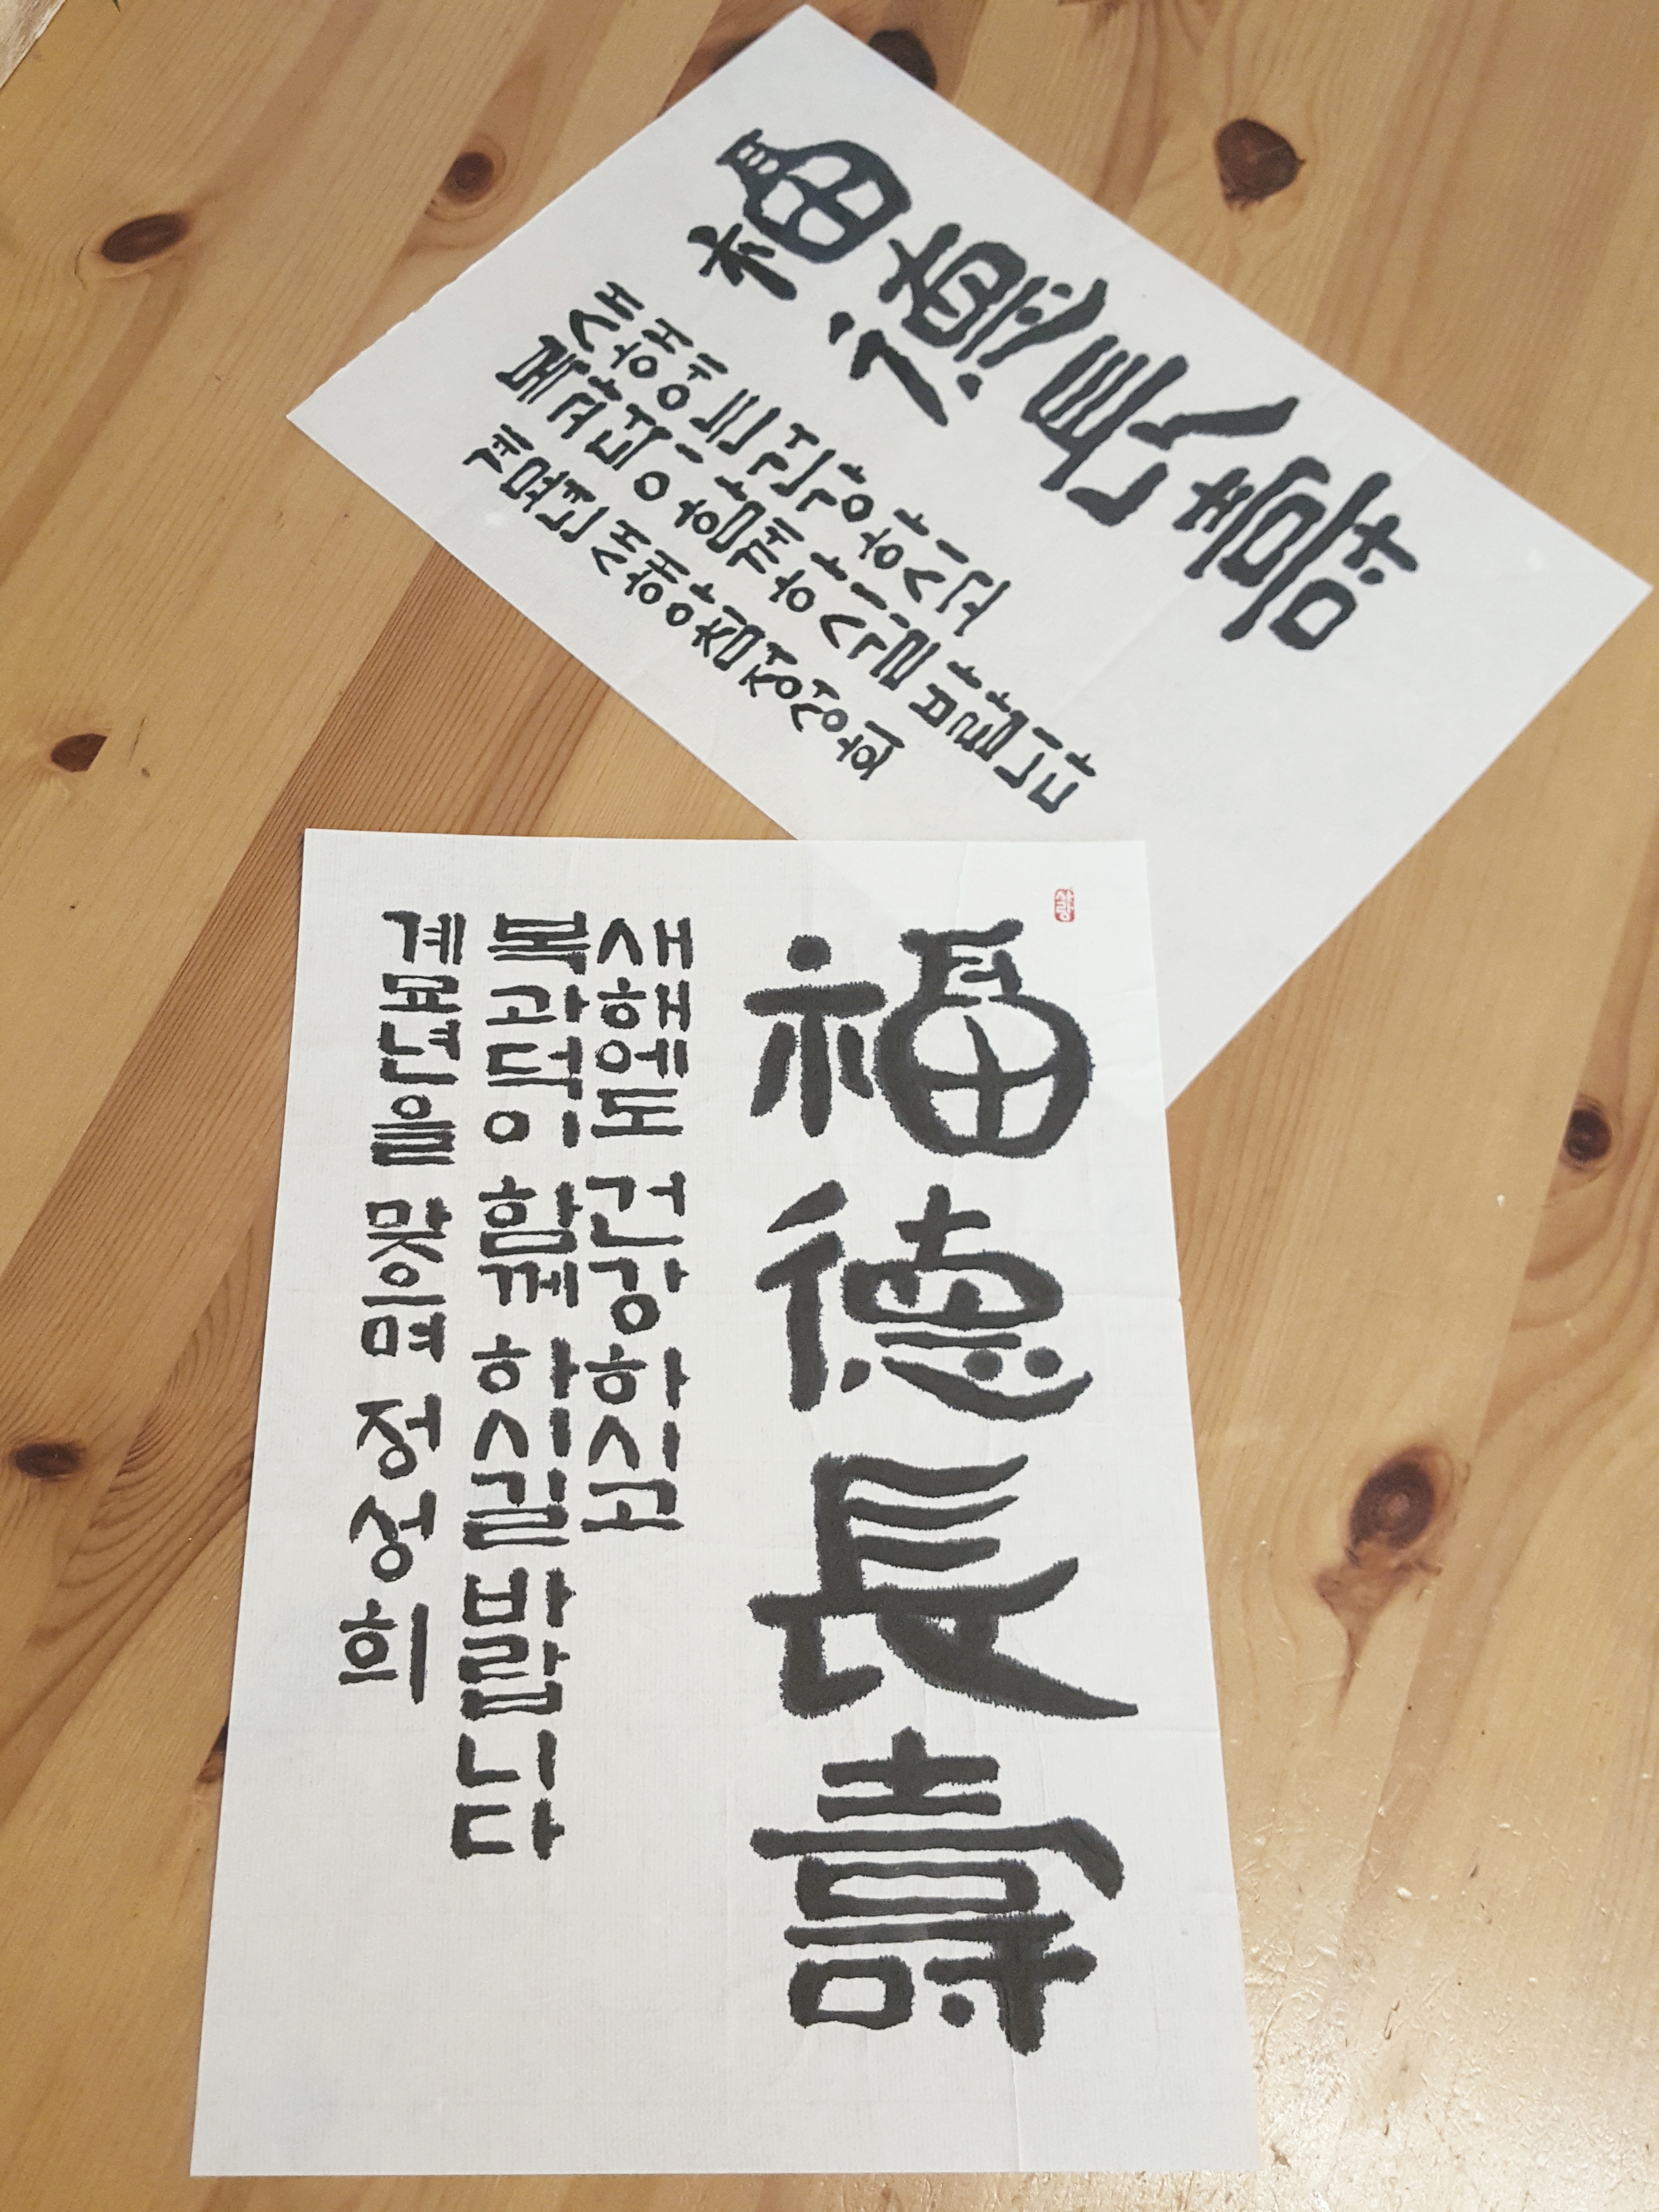 福德長壽
새해에도 건강하시고
복과덕이 함께하시길 바랍니다
계묘년 새해아침 정성희
福德長壽
새해에도 건강하시고
복과덕이 함께 하시길 바랍니다
계묘년을 맞이며 정성희